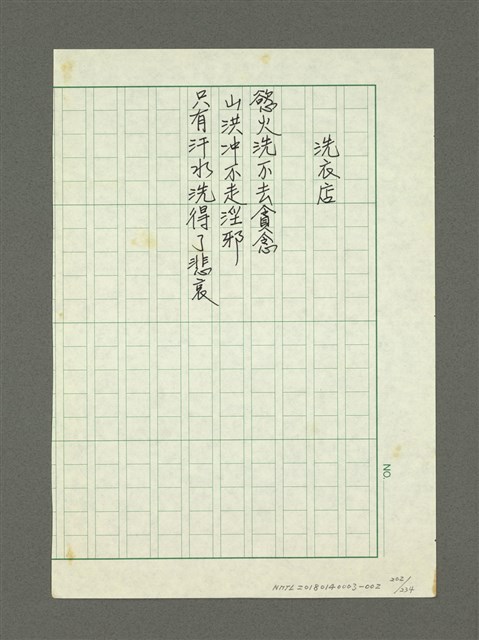 洗衣店
慾火洗不去貪念
山洪冲不走淫邪
只有汗水洗得了悲哀
NO.
NMTL20180140003-002
202/234